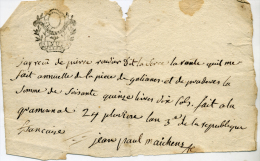 jay reçu de pierre routier dit la rose la rante quil me
fait annuelle de la pièce de galinier et de pradover la
somme de soixante quinze livres dix sols, fait a la
grammuat 24 pluviose lan 3me de la republique
francaise
jean paul maichens